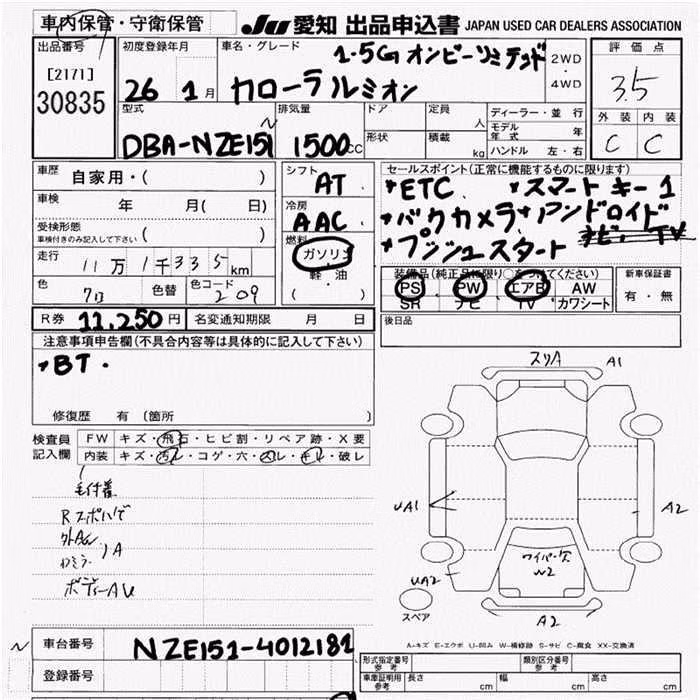 車内保管・守衛保管 JU 愛知 出品申込書 JAPAN USED CAR DEALERS ASSOCIATION
出品番号 初度登録年月 車名・グレード 1.5G オンビーリミテッド 2WD・4WD 評価点
[2171] 30835 26 1月 カローラルミオン 3.5
型式 排気量 ドア 定員 人 ディーラー・並行 外装 内装
モデル年式 年
DBA-NZE151N 1500cc 形状 積載 kg ハンドル 左・右 C C
車歴 自家用・( ) シフト AT セールスポイント(正常に機能するものに限ります)
*ETC *スマートキー1
車検 年 月( 日) 冷房 AAC *バックカメラ *アンドロイド
受検形態
車検付きのみ記入して下さい ( ) 燃料 ガソリン *プッシュスタート ナビ、TV
走行 11万1千335km 軽・油 装備品(純正品に限り○をつけてください) 新車保証書
色 色替 色コード 209 ( ) PS PW エアB AW 有・無
SR ナビ TV カワシート
R券 11,250円 名変通知期限 月 日 後日品
注意事項申告欄(不具合内容等は具体的に記入して下さい)
*BT・
修復歴 有 (箇所 )
スリA A1
検査員記入欄 FW キズ・飛石・ヒビ割・リペア跡・X要
内装 キズ・汚レ・コゲ・穴・スレ・キレ・破レ
毛付着
Rスポハゲ
外AW
ミラ A
ボディーAU
UA1 A2
ワイパー欠
W2
UA2
スペア A2
A-キズ E-エクボ U-凹み W-補修跡 S-サビ C-腐食 XX-交換済
N 車台番号 NZE151-4012181
登録番号
形式指定番号参考 類別区分番号参考
車庫証明用参考 長さ cm 幅 cm 高さ cm